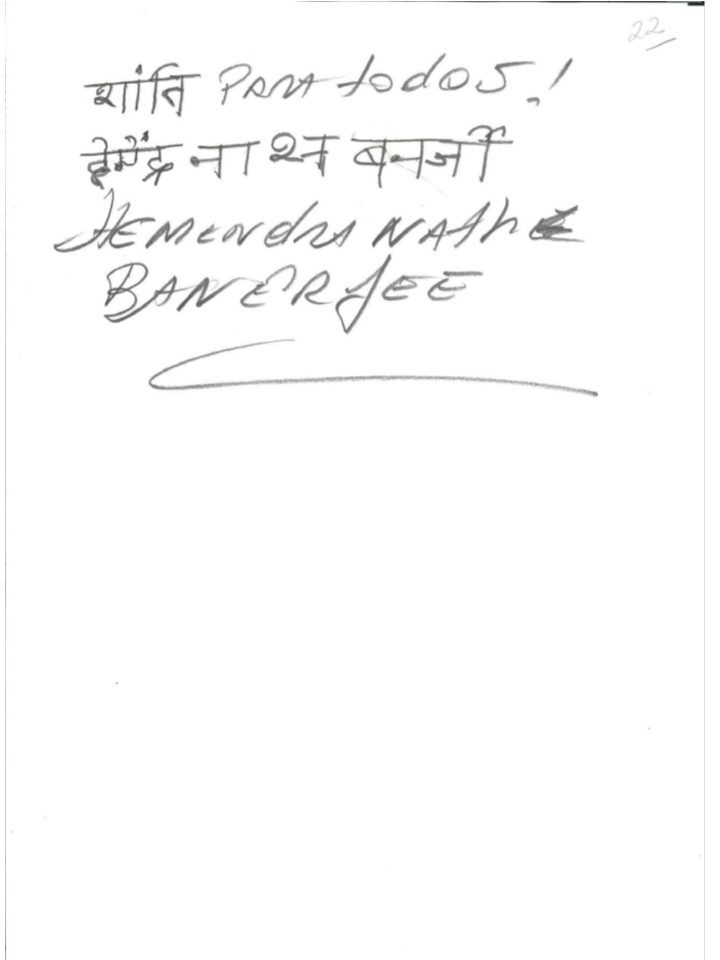 22
शांति PARA todos!
हेमेंद्र नाथ बनर्जी
HEMENDRA NATH
BANERJEE